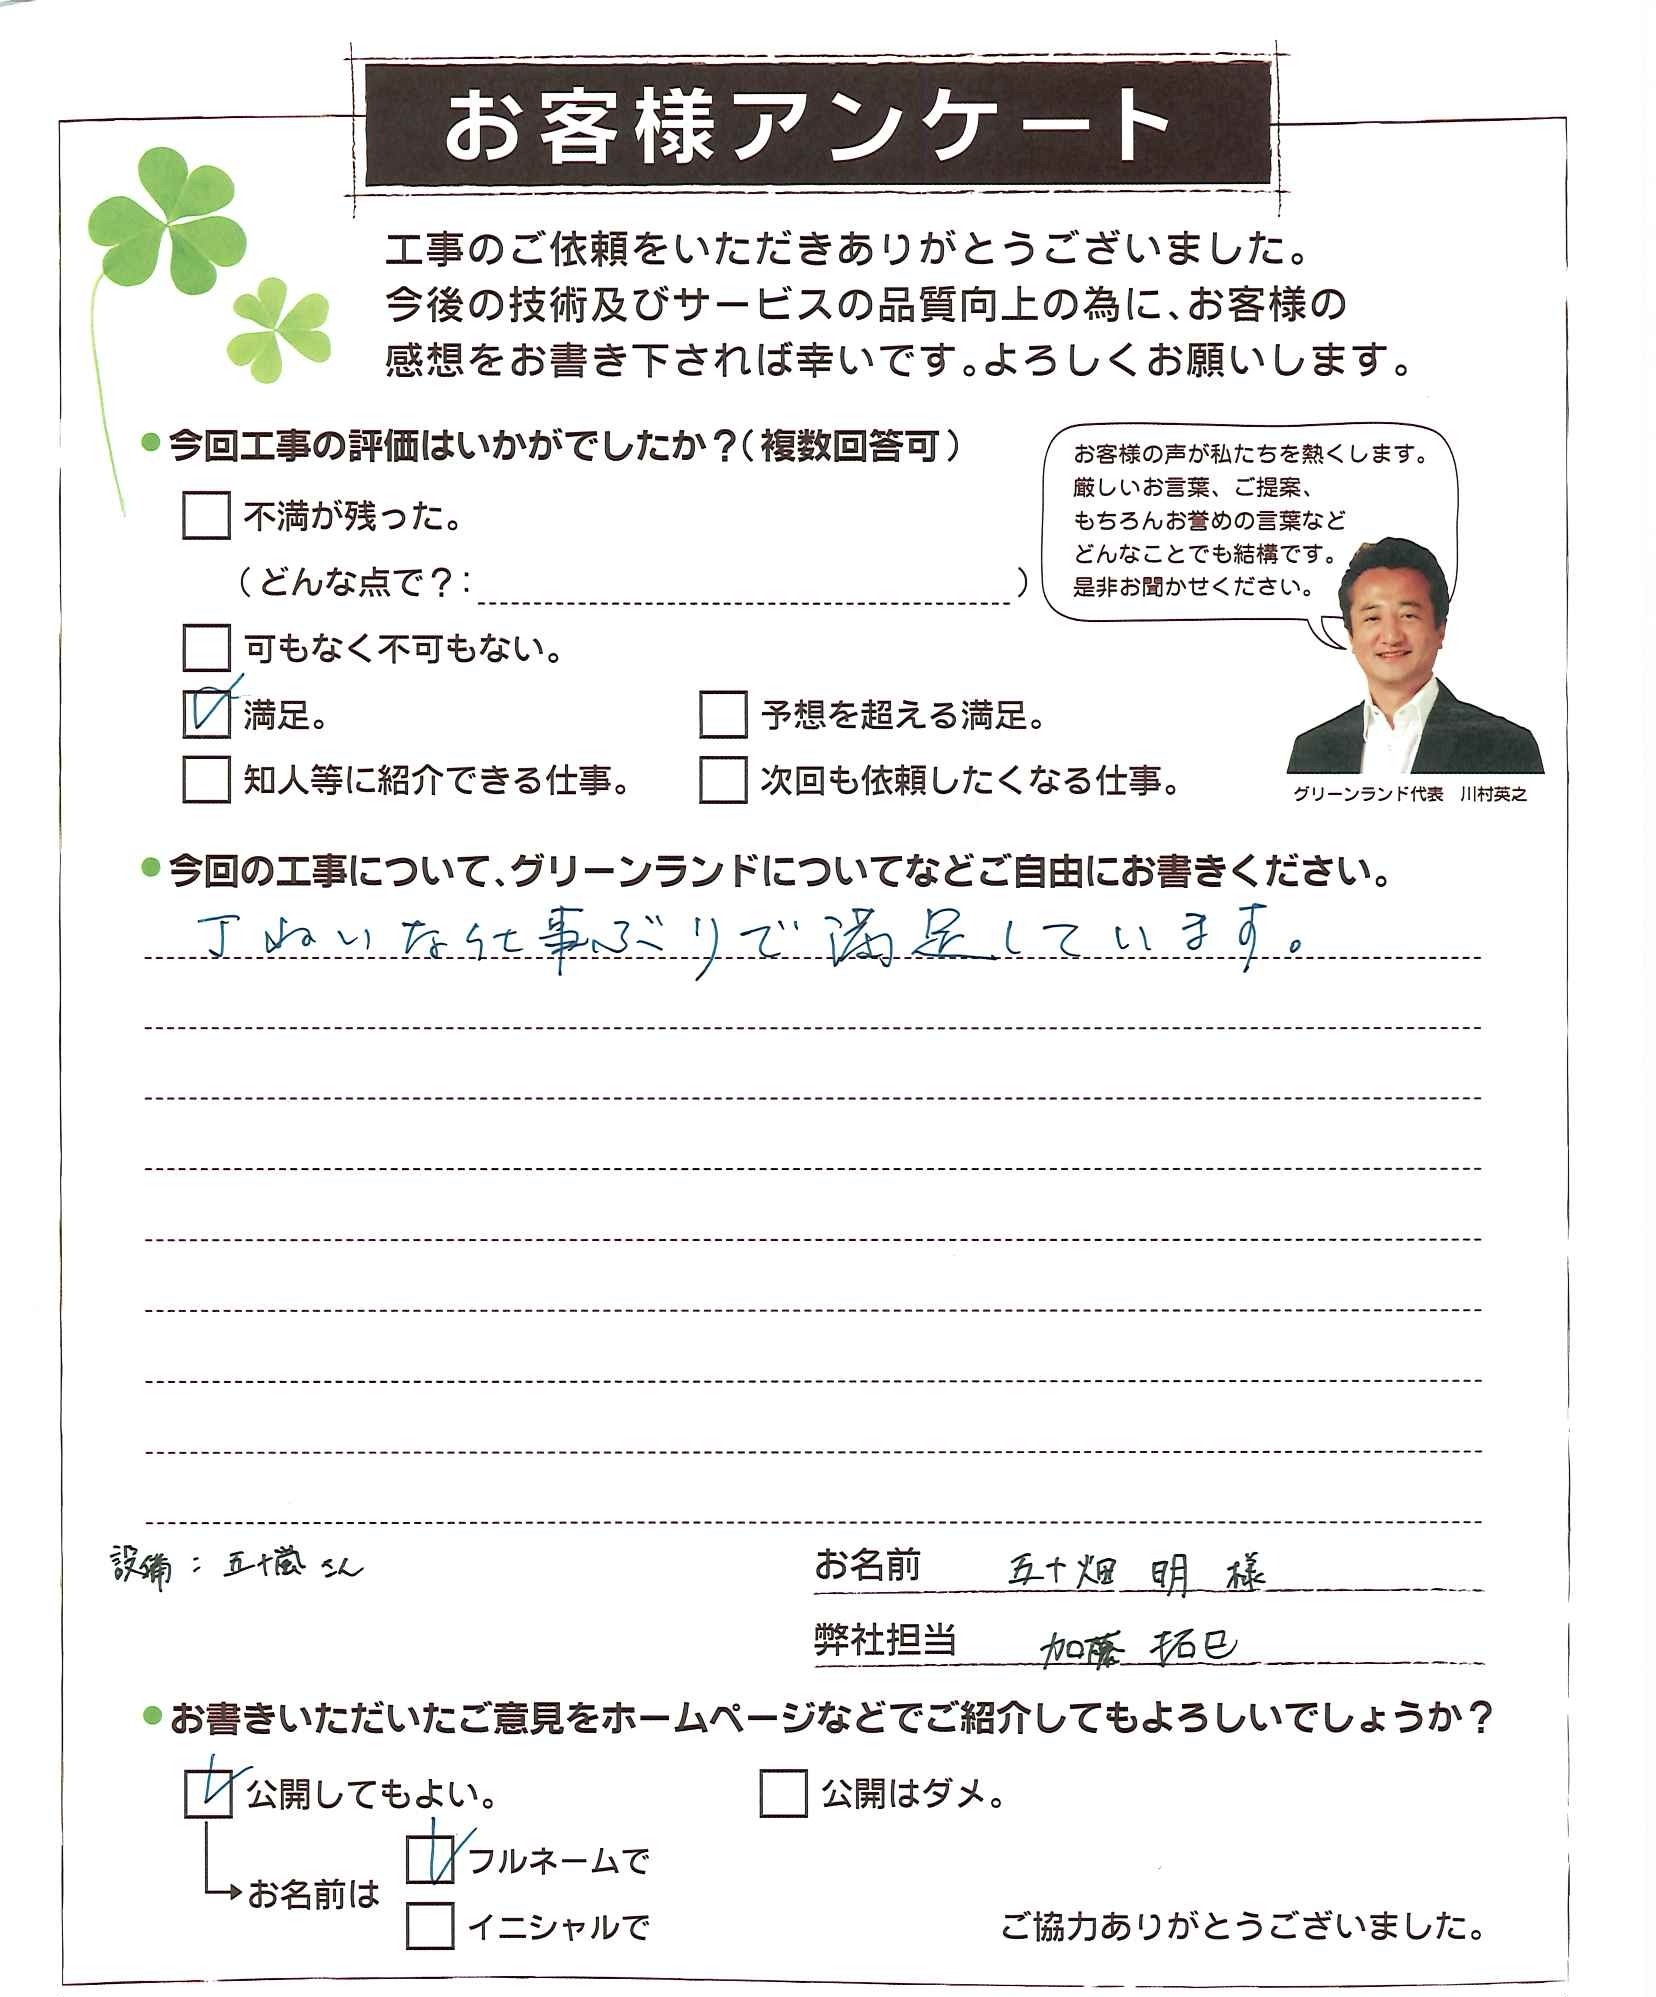 お客様アンケート
工事のご依頼をいただきありがとうございました。
今後の技術及びサービスの品質向上の為に、お客様の
感想をお書き下されば幸いです。よろしくお願いします。
●今回工事の評価はいかがでしたか？（複数回答可）
お客様の声が私たちを熱くします。
厳しいお言葉、ご提案、
もちろんお誉めの言葉など
どんなことでも結構です。
是非お聞かせください。
不満が残った。
（どんな点で？：　　　）
可もなく不可もない。
満足。　予想を超える満足。
知人等に紹介できる仕事。　次回も依頼したくなる仕事。
グリーンランド代表　川村英之
●今回の工事について、グリーンランドについてなどご自由にお書きください。
丁ねいな仕事ぶりで満足しています。
設備：五十嵐さん
お名前　五十畑 明 様
弊社担当　加藤 拓巳
●お書きいただいたご意見をホームページなどでご紹介してもよろしいでしょうか？
公開してもよい。　公開はダメ。
フルネームで
お名前は
イニシャルで
ご協力ありがとうございました。